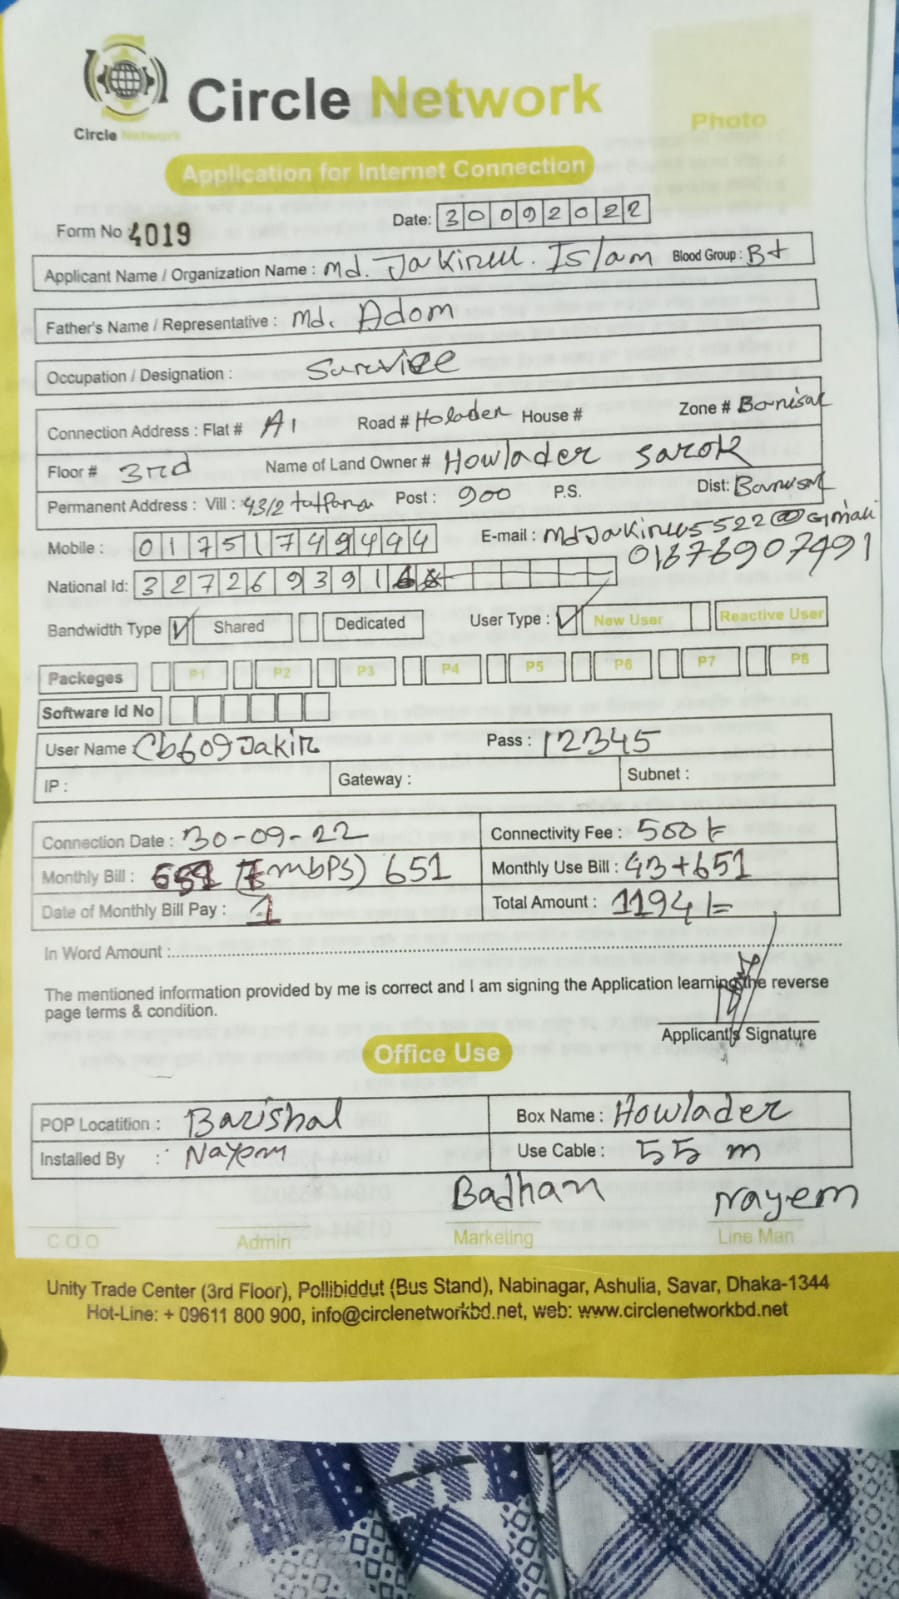 Circle Network
Circle Network
Photo
Application for Internet Connection
Form No : 4019
Date: 30092022
Applicant Name / Organization Name : Md. Jakirul. Islam Blood Group : B+
Father's Name / Representative : Md. Adom
Occupation / Designation : Survice
Connection Address : Flat # A1 Road # Holader House # Zone # Borisal
Floor # 3rd Name of Land Owner # Howlader sarok
Permanent Address : Vill : 43/2 Post : 900 P.S. Dist: Borisal
Mobile : 01751749494 E-mail : MdJakirul5522@Gmail
01676907491
National Id: 327269391
Bandwidth Type Shared Dedicated User Type : New User Reactive User
Packeges P1 P2 P3 P4 P5 P6 P7 P8
Software Id No
User Name Cb609Jakir Pass : 12345
IP : Gateway : Subnet :
Connection Date : 30-09-22 Connectivity Fee : 500 t
Monthly Bill : (7 mbps) 651 Monthly Use Bill : 43+651
Date of Monthly Bill Pay : 1 Total Amount : 1194/=
In Word Amount :
The mentioned information provided by me is correct and I am signing the Application learning the reverse
page terms & condition.
Applicant's Signature
Office Use
POP Locatition : Barishal Box Name : Howlader
Installed By : Nayem Use Cable : 55 m
Badhan Nayem
C O O Admin Marketing Line Man
Unity Trade Center (3rd Floor), Pollibiddut (Bus Stand), Nabinagar, Ashulia, Savar, Dhaka-1344
Hot-Line: + 09611 800 900, info@circlenetworkbd.net, web: www.circlenetworkbd.net